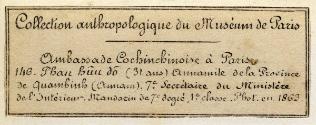 Collection anthropologique du Muséum de Paris
Ambassade Cochinchinoise à Paris
148. Phan hũu dô (31 ans) Annamite de la Province
de Quambinh (Annam). 7e Secrétaire du Ministère
de l'Intérieur. Mandarin du 7e degré, 1e classe. Phot. en 1863